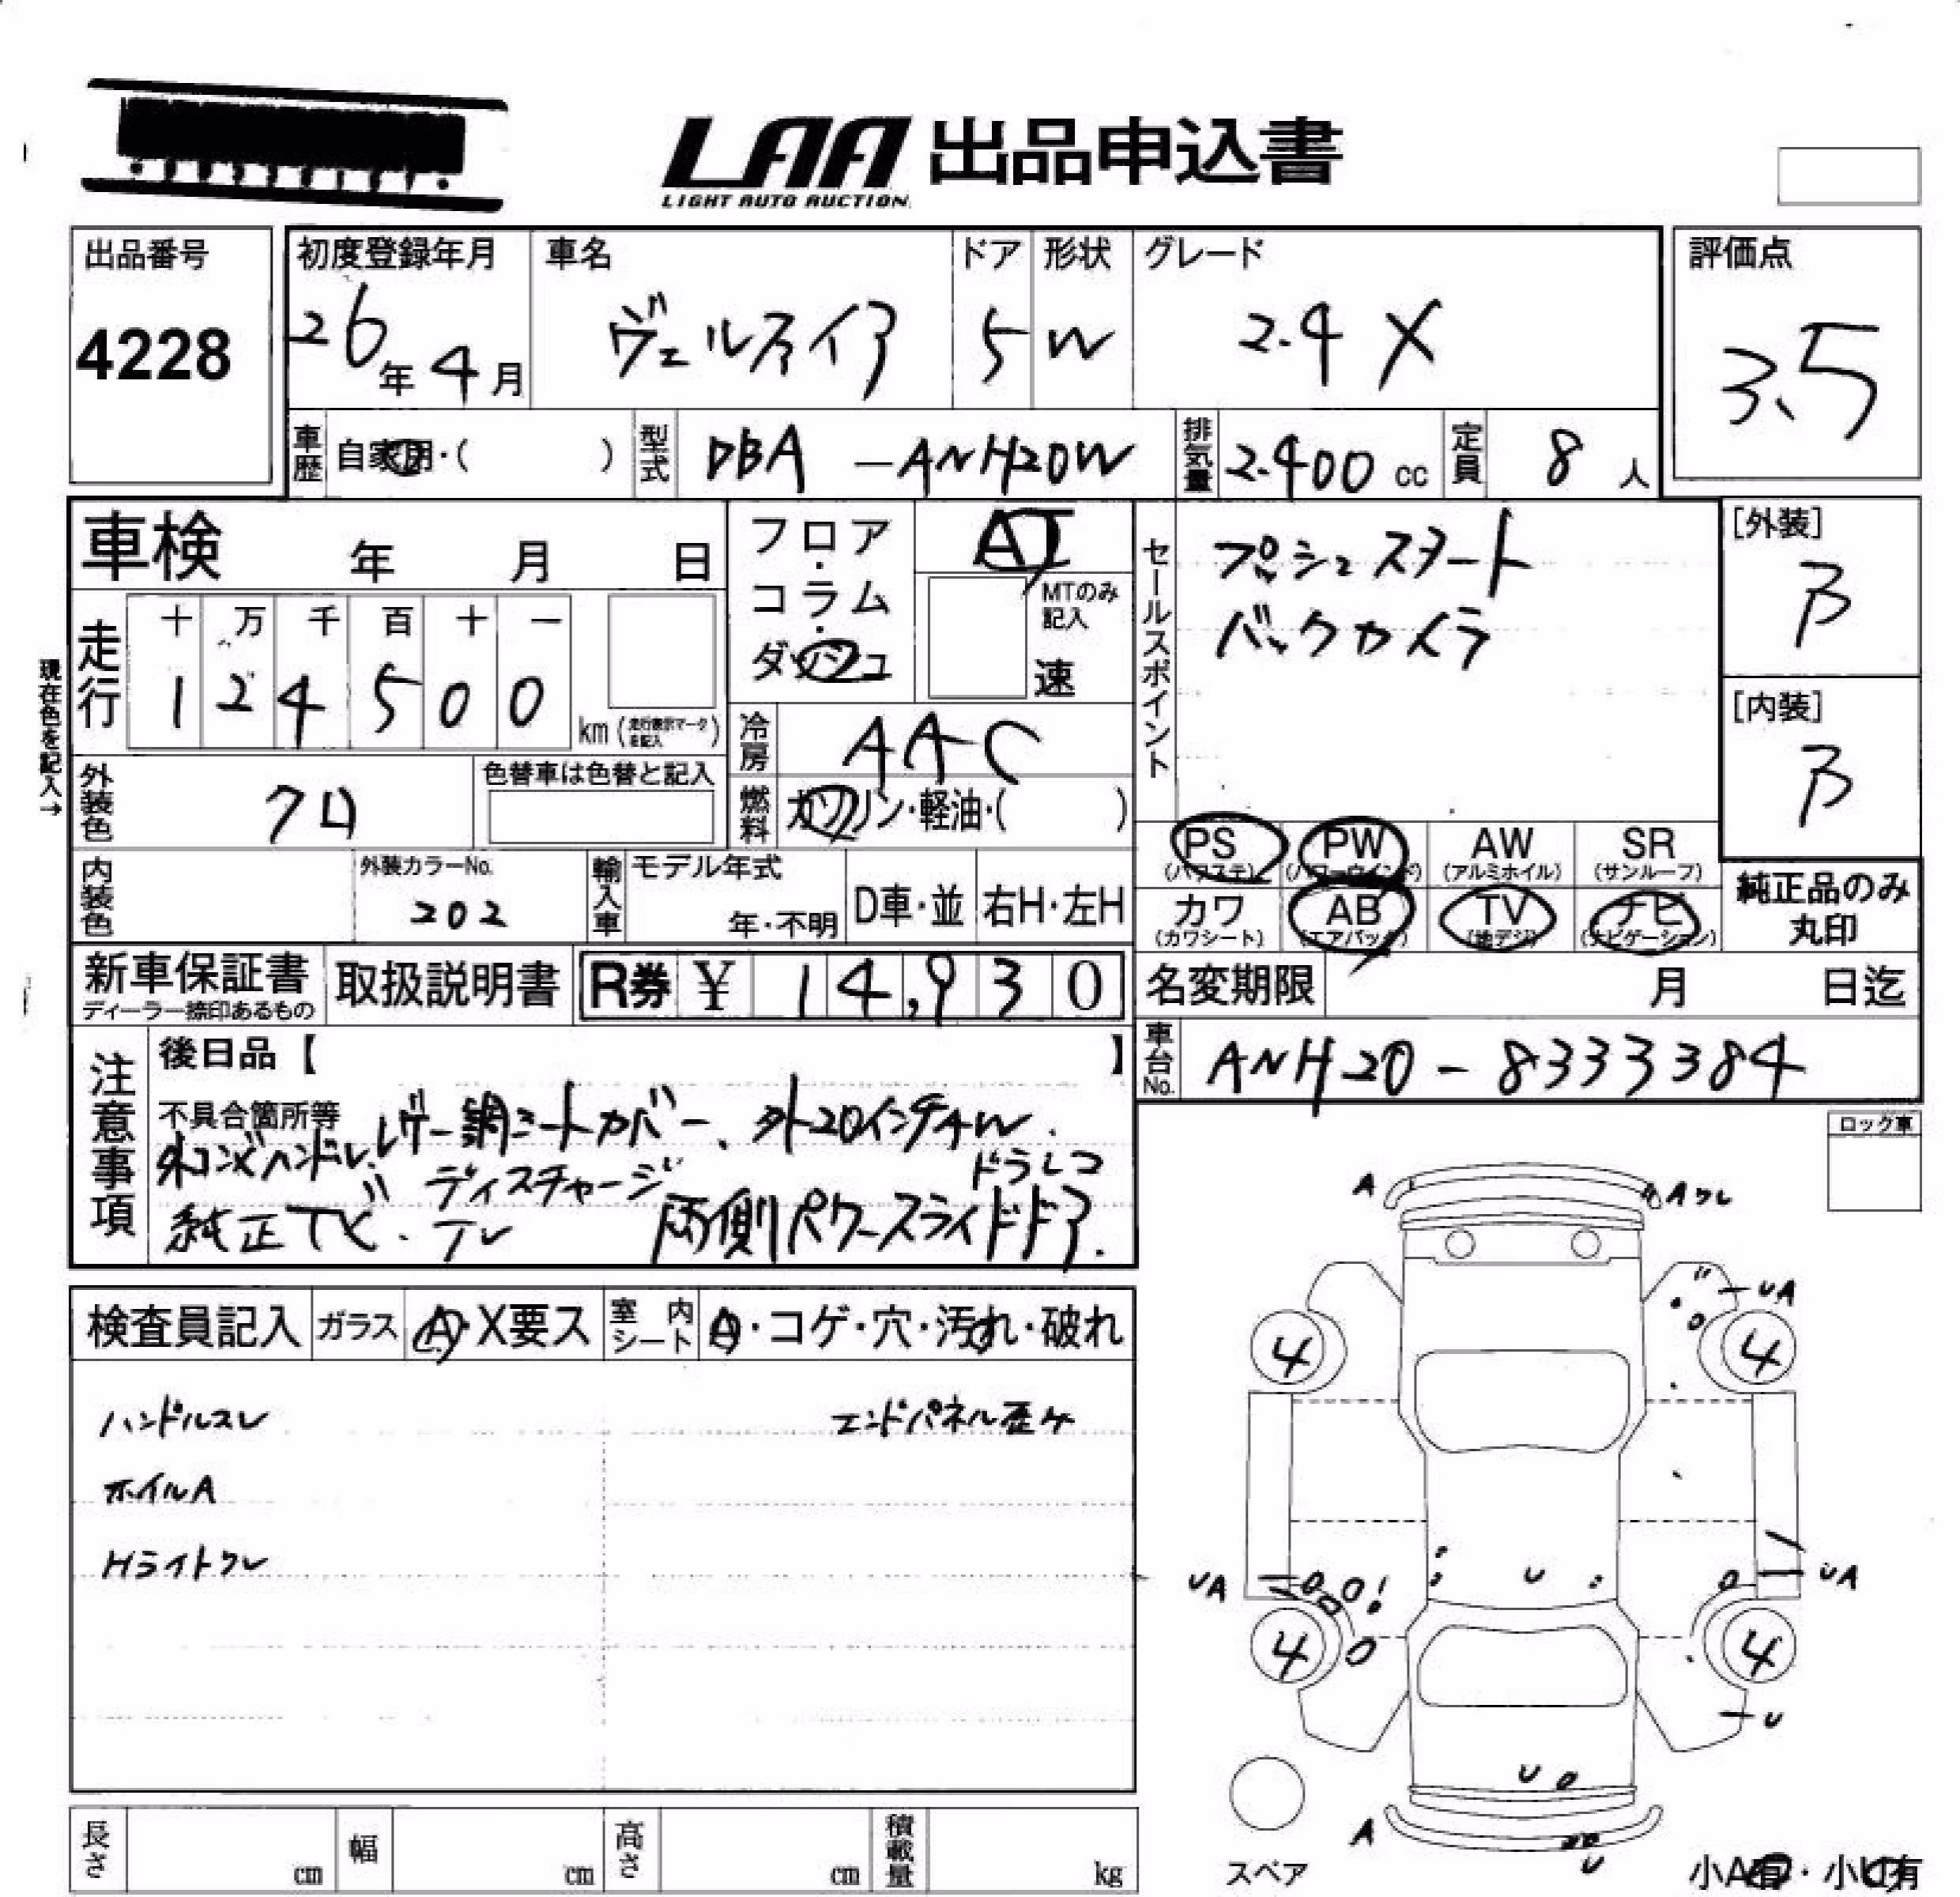 LAA 出品申込書
LIGHT AUTO AUCTION
出品番号
4228
初度登録年月
26年 4月
車名
ヴェルファイア
ドア
5
形状
W
グレード
2.4 X
評価点
3.5
車歴
自家用・( )
型式
DBA - ANH20W
排気量
2.400 cc
定員
8 人
車検 年 月 日
フロア・コラム・ダッシュ
AT
MTのみ記入
速
セールスポイント
プッシュスタート
バックカメラ
[外装]
B
[内装]
B
現在色を記入→
走行
十 万 千 百 十 一
1 2 4 5 0 0
km (走行表示マークを記入)
冷房
AAC
燃料
ガソリン・軽油・( )
外装色
クロ
色替車は色替と記入
内装色
外装カラーNo.
202
輸入車
モデル年式
年・不明
D車・並
右H・左H
PS (パワステ)
PW (パワーウインド)
AW (アルミホイル)
SR (サンルーフ)
カワ (カワシート)
AB (エアバック)
TV (地デジ)
ナビ (ナビゲーション)
純正品のみ
丸印
新車保証書
ディーラー捺印あるもの
取扱説明書
R券 ¥ 14,930
名変期限 月 日迄
車台No.
ANH20-8333384
注意事項
後日品【 】
不具合箇所等
レザー調シートカバー、外20インチAW.
外コンビハンドル、
ディスチャージ
ドラレコ
純正 TV
両側パワースライドドア.
ロック車
検査員記入
ガラス
A・X要ス
室内シート
A・コゲ・穴・汚れ・破れ
ハンドルスレ
エンドパネル歪ケ
ホイルA
Hライトワレ
A
Aワレ
UA
4
4
UA
U
UA
4
4
U
U
A
U
スペア
小A有・小U有
長さ cm
幅 cm
高さ cm
積載量 kg